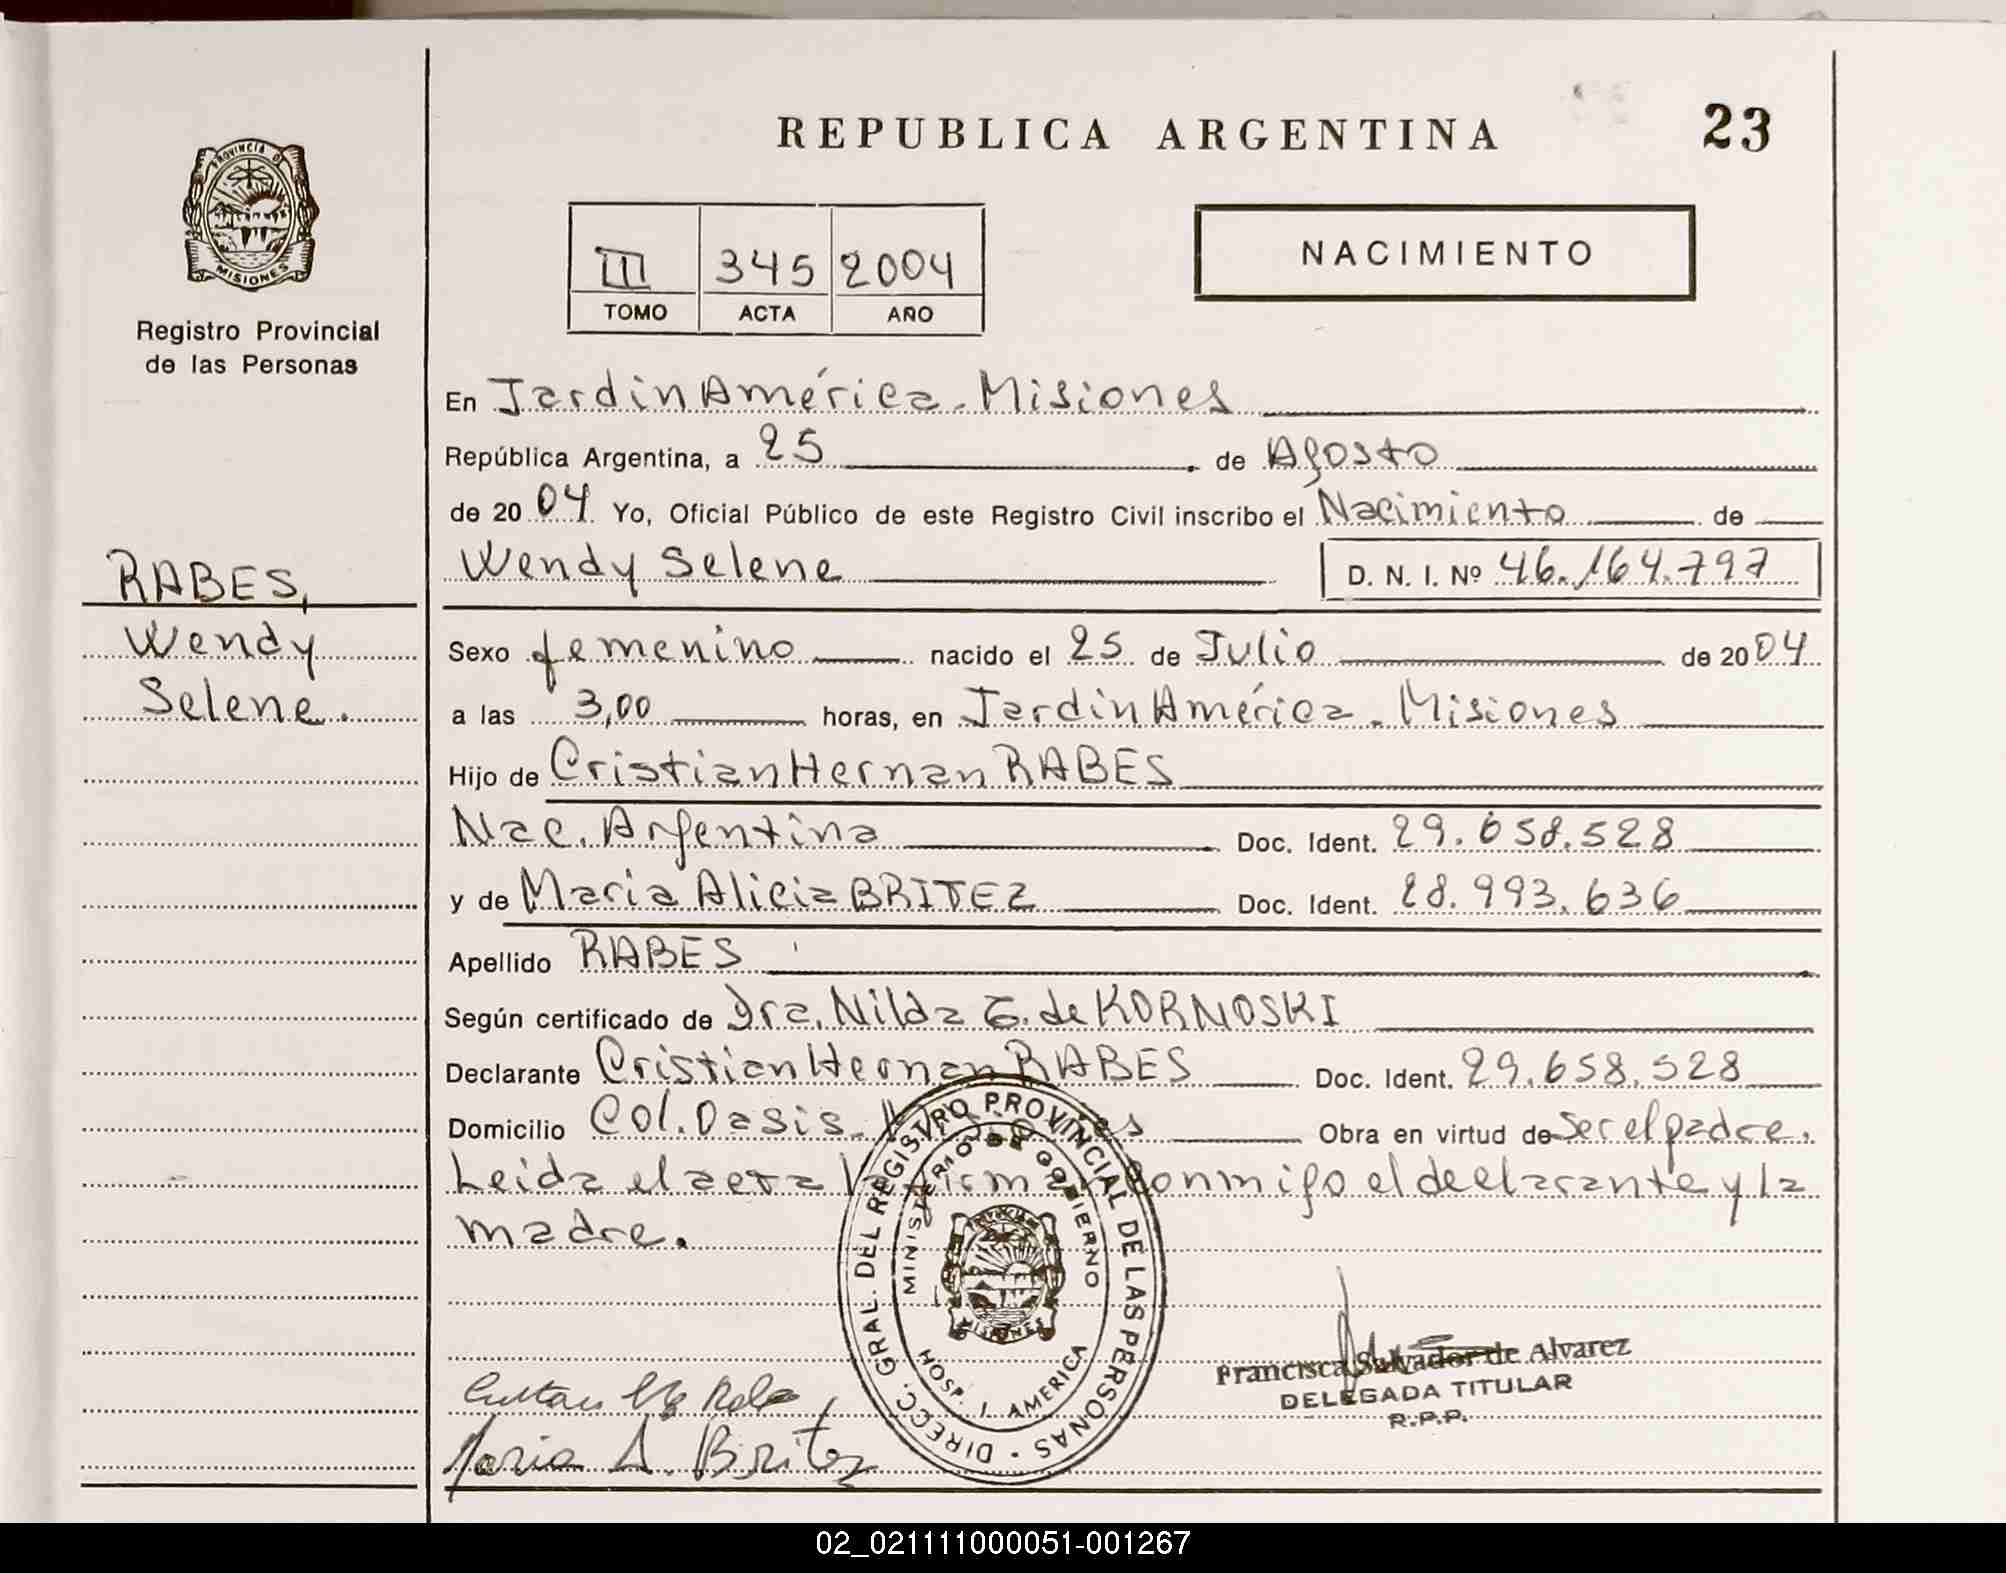 REPUBLICA ARGENTINA
23
PROVINCIA D
MISIONES
Registro Provincial
de las Personas
III 345 2004
TOMO ACTA AÑO
NACIMIENTO
En Jardin América - Misiones
República Argentina, a 25 de Agosto
de 2004 Yo, Oficial Público de este Registro Civil inscribo el Nacimiento de
Wendy Selene D. N. I. Nº 46.164.797
RABES,
Wendy
Selene.
Sexo femenino nacido el 25 de Julio de 2004
a las 3,00 horas, en Jardin América - Misiones
Hijo de Cristian Hernan RABES
Nac. Argentina Doc. Ident. 29.658.528
y de Maria Alicia BRITEZ Doc. Ident. 28.993.636
Apellido RABES
Según certificado de Dra. Nilda G. de KORNOSKI
Declarante Cristian Hernan RABES Doc. Ident. 29.658.528
Domicilio Col. Oasis - Obra en virtud de ser el padre.
Leida el acta conmigo el declarante y la
madre.
DIRECC. GRAL. DEL REGISTRO PROVINCIAL DE LAS PERSONAS
MINISTERIO DE GOBIERNO
MISIONES
HOSP. J. AMERICA
Francisca Salvador de Alvarez
DELEGADA TITULAR
R.P.P.
Maria A. Britez
02_021111000051-001267